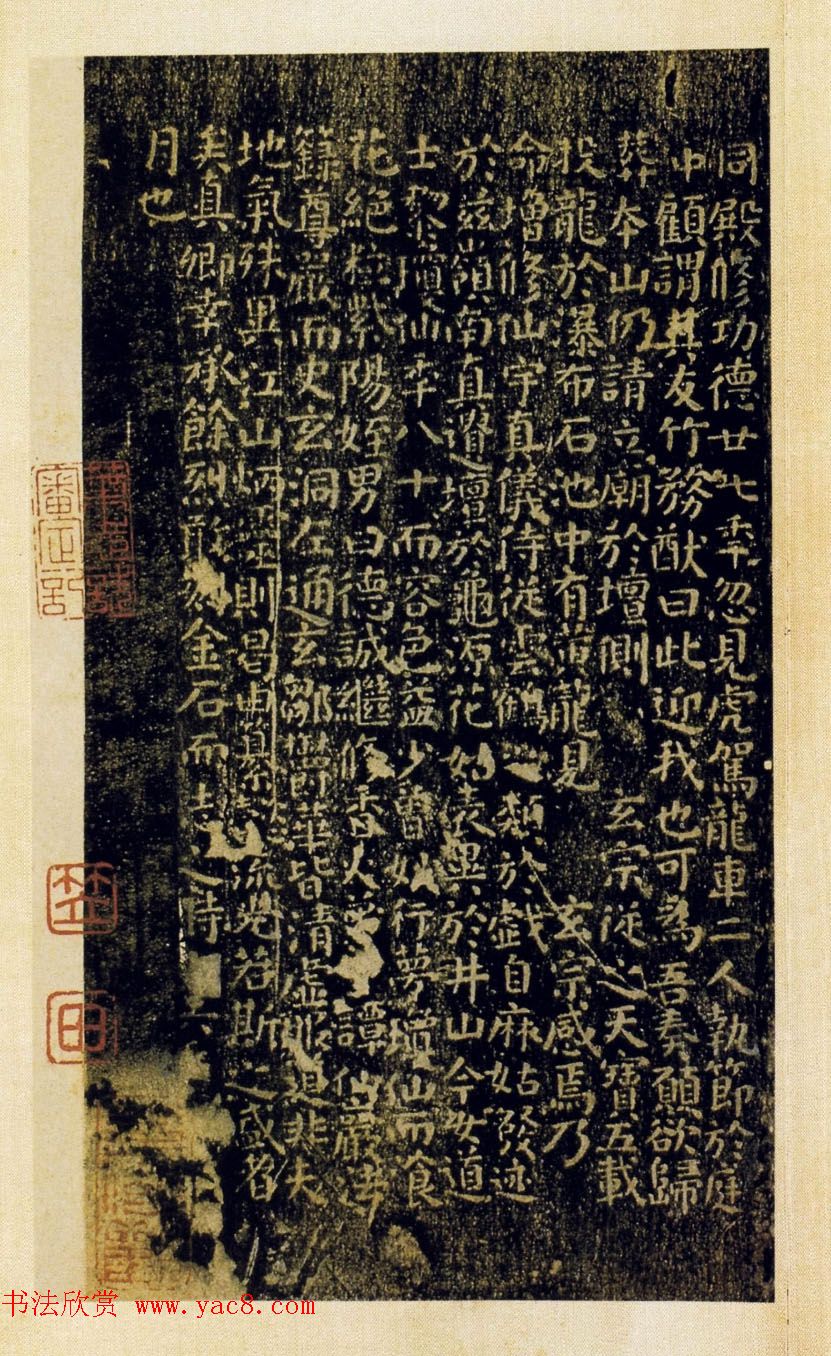 同殿修功德廿七年忽見虎駕龍車二人執節於庭
中顧謂其友竹務猷曰此迎我也可為吾奏願欲歸
葬本山仍請立廟於壇側 玄宗從之天寶五載
投龍於瀑布石池中有黃龍見 玄宗感焉乃
命增修仙宇真儀侍從雲鶴之類於戲自麻姑發迹
於茲嶺南真遺壇於龜源花姑表異於井山今女道
士黎瓊仙年八十而容色益少曾妙行夢瓊仙而食
花絕粒紫陽姪男曰德誠繼修香火 譚仙巖
籙尊嚴而史玄洞左通玄鄒鬱華皆清虛服道非夫
地氣殊異江山炳 則曷由纂 流光若斯之盛者
矣真卿幸承餘烈敢 金石而 之時 六
月也
番
竺
田
书法欣赏 www.yac8.com